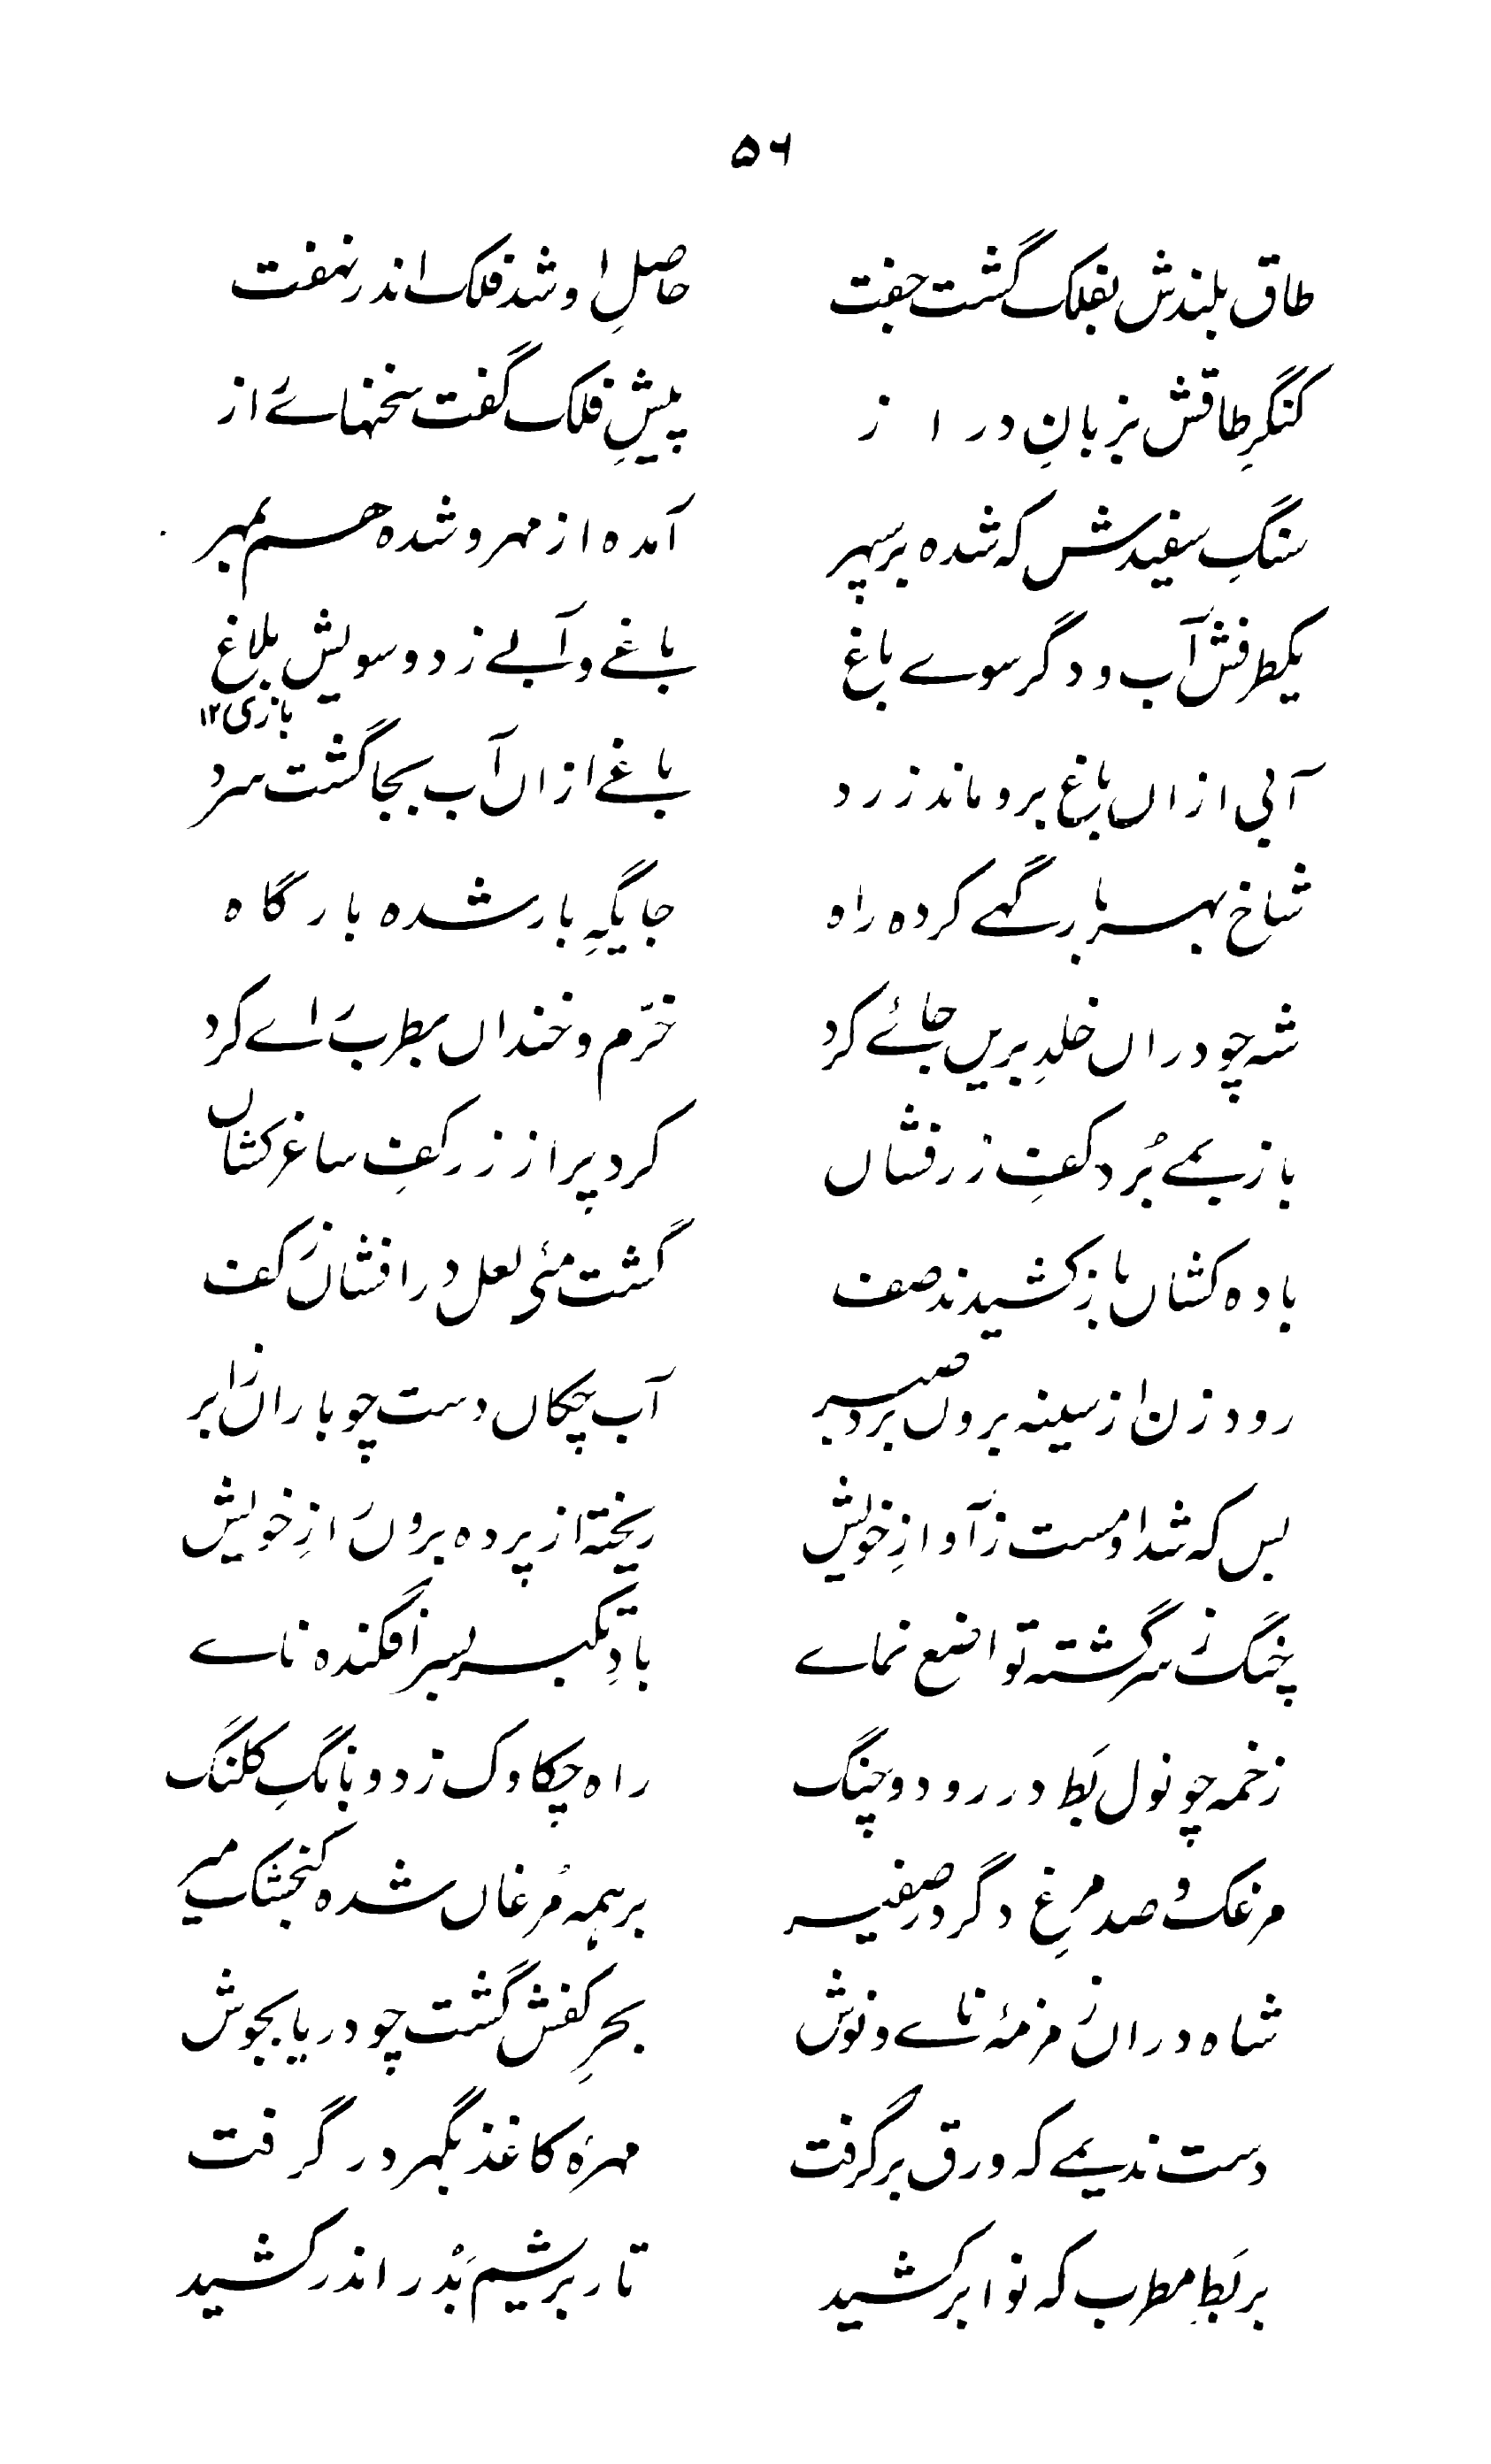 ۵۶
طاق بلندش بفلک گشت جفت حاصلِ او شد فلک اندر نهفت
کنگرِ طاقش بزبانِ دراز پیشِ فلک گفت سخنهائے از
سنگِ سفیدش که شده برسپهر آمده از مهر و شده هم بمهر
یکطرفش آب و دگر سوے باغ باغے و آبے ز دو سویش بلاغ
بازی ۱۲
آبی ازاں باغ برو ماند زرد باغے ازاں آب بجا گشت سرد
شاخ بهر بارگهے کرده راه جایگهِ بار شده بارگاه
شه چو دراں خلدِ بریں جائے کرد خرّم و خنداں بطرب رائے کرد
باز بمے بُرد کفِ زرفشاں کرد پر از زر کفِ ساغر کشاں
باده کشاں باز کشیدند صف گشت مئی لعل درافشاں ز کف
رود زن از سینه بروں برد صبر آب چکاں دست چو باراں ز ابر
بس که شد او مست ز آوازِ خویش ریخته از پرده بروں رازِ خویش
چنگ ز سرگشته تواضع نماے بادِ تکبر بسر افگنده ناے
زخمه چو نول بَط در رود و چنگ راه چکاوک زد و بانگِ کلنگ
مرغک و صد مرغِ دگر در صفیر بر همه مُرغاں شده گنجشک میر
شاه دراں زمزمهٔ ناے و نوش بحرِ کفش گشت چو دریا بجوش
دست ندیمے که ورق برگرفت مهرهٔ کاغذ بگهر درگرفت
بربطِ مطرب که نوا برکشید تار بریشم بَدُر اندر کشید